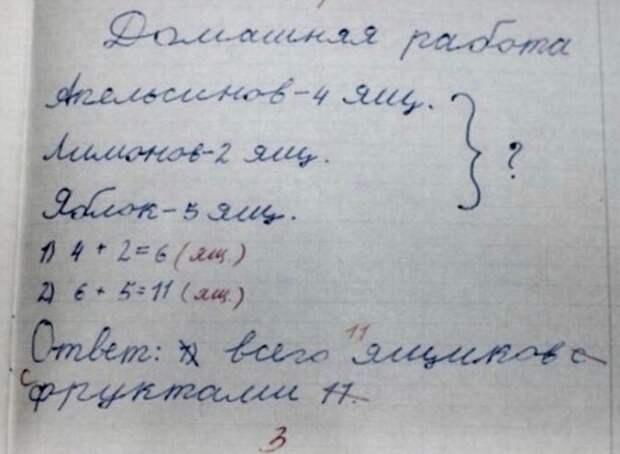 Домашняя работа
Апельсинов-4 ящ.
Лимонов-2 ящ. } ?
Яблок-5 ящ.
1) 4 + 2 = 6 (ящ.)
2) 6 + 5 = 11 (ящ.)
11
Ответ: всего ящиков с
с фруктами 11.
3